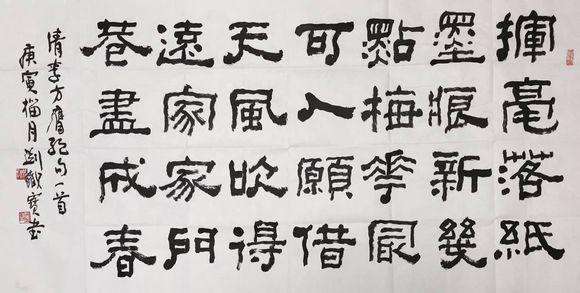 揮毫落紙
墨痕新幾
點梅華冣
可人願借
天風吹得
遠家家門
巷盡成春
清李方膺絕句一首
庚寅榴月劉鐵寶書